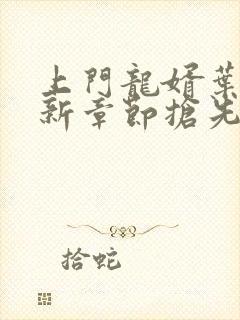 上門龍婿葉
新章節搶先
拾蛇